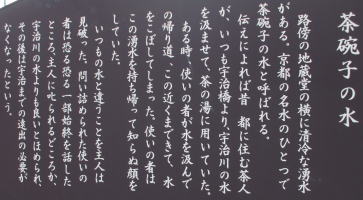 茶碗子の水
路傍の地蔵堂の横に清冷な湧水
がある。京都の名水のひとつで
茶碗子の水と呼ばれる。
伝えによれば昔 都に住む茶人
が、いつも宇治橋より、宇治川の水
を汲ませて、茶の湯に用いていた。
ある時、使いの者が水を汲んで
の帰り道、この近くまできて、水
をこぼしてしまった。使いの者は
この湧水を持ち帰って知らぬ顔を
していた。
いつもの水と違うことを主人は
見破った。問い詰められた使いの
者は恐る恐る一部始終を話した
ところ、主人に叱られるどころか、
宇治川の水よりも良いとほめられ、
その後は宇治までの遠出の必要が
なくなったという。